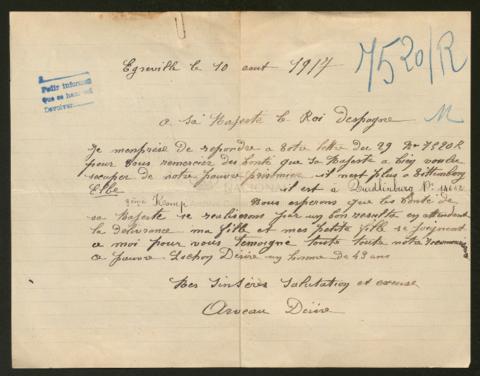 Egreville le 10 aout 1917
7520/R
Pedir informes
que se han
Devolver
M
a sa Majeste le Roi despagne
Je menpresse de repondre a votre lettre du 29 No 7520 R
pour vous remercier des bonté que sa Majeste a bien voulu
occuper de notre pauvre prisonnier il nest plus a Wittenberg
Elbe il est a Quedlinburg No
2eme Komp Nous esperons que les bonté de
sa Majeste se realiserons par un bon resultat en attendant
la delivrance ma fille et mes petite fille se joignent
a moi pour vous temoigne toute toute notre reconnaissance
a pauvre Désiré un homme de 43 ans
Mes sinsères salutation et excuse
Arveau Désiré